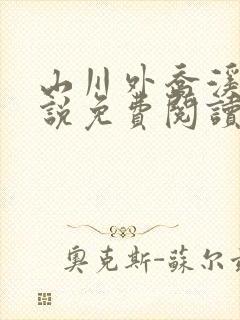 山川外喬溪
說免費閱讀
奧克斯-蘇尔